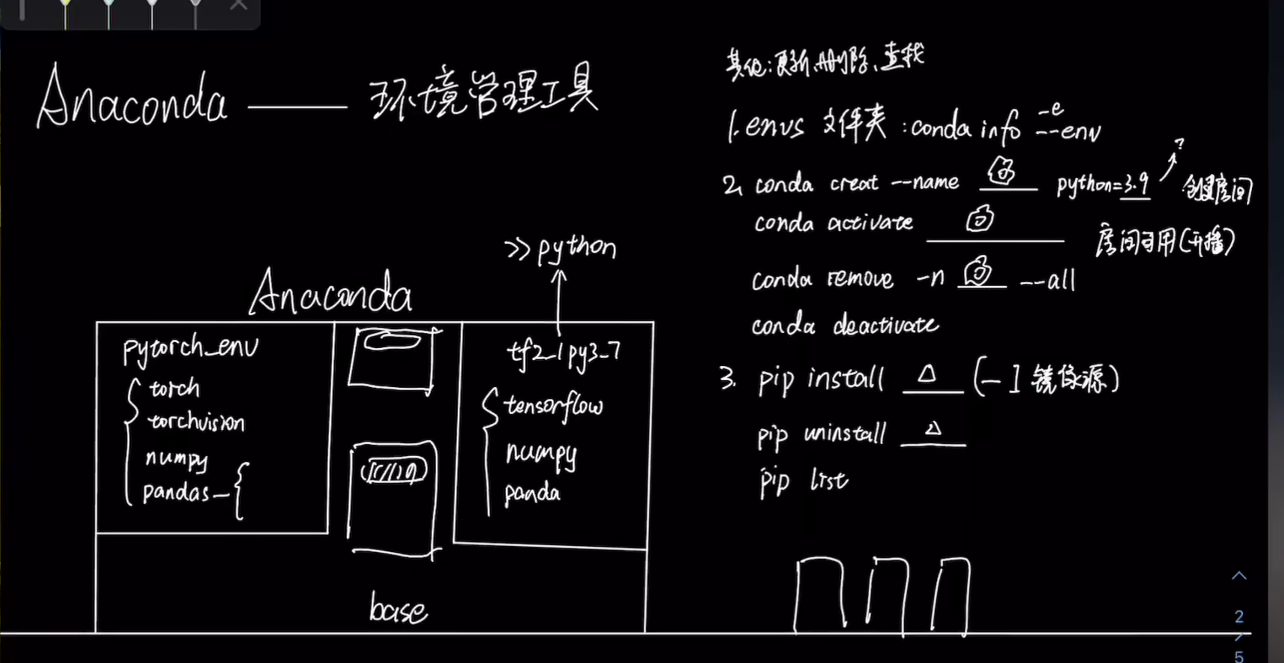 Anaconda —— 环境管理工具
Anaconda
>> python
pytorch_env
torch
torchvision
numpy
pandas
tf2_1py3_7
tensorflow
numpy
panda
base
其他:更新、删除、查找
1. envs 文件夹:conda info --env
-e
2. conda creat --name ____ python=3.9 ? 创建房间
conda activate ____ 房间可用(开播)
conda remove -n ____ --all
conda deactivate
3. pip install △ (-i 镜像源)
pip uninstall △
pip list
2
5